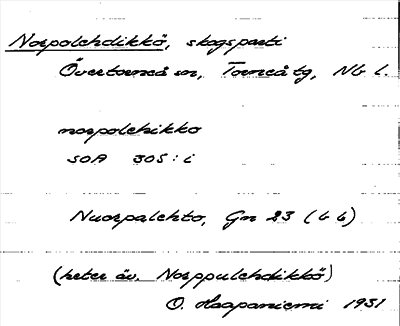 Norpolehdikkö, skogsparti
Övertorneå sn, Torneå tg, Nb l.
norpolehikko
SOA 305:i
Nuorpalehto, Gn 23 (b 6)
(heter äv. Norppulehdikkö)
O. Haapaniemi 1931